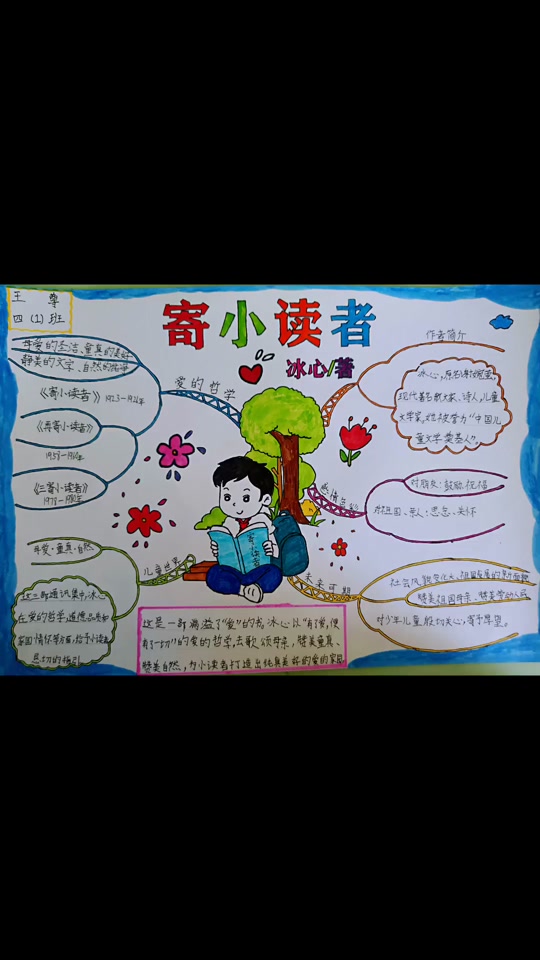 王 尊
四（1）班
寄小读者
冰心/著
爱的哲学
母爱的圣洁、童真的美好
静美的文字、自然的
《寄小读者》 1923-1926年
《再寄小读者》
1958-1960年
《三寄小读者》
1978-1980年
作者简介
冰心，原名谢婉莹，
现代著名散文家、诗人，儿童
文学家，她被誉为“中国儿
童文学奠基人”。
感情
对朋友：鼓励、祝福
对祖国、亲人：思念、关怀
儿童世界
母爱·童真·自然
这三部通讯集中，冰心
在爱的哲学，道德品质和
家国情怀等方面，给予小读者
恳切的指引
未来可期
社会风貌变化大、祖国发展的新面貌
赞美祖国母亲、赞美劳动人民
对少年儿童殷切关心，寄予厚望。
这是一部满溢了“爱”的书，冰心以“有了爱，便
有了一切”的爱的哲学，去歌颂母亲，赞美童真、
赞美自然，为小读者打造出纯真美好的爱的家园
寄小读者